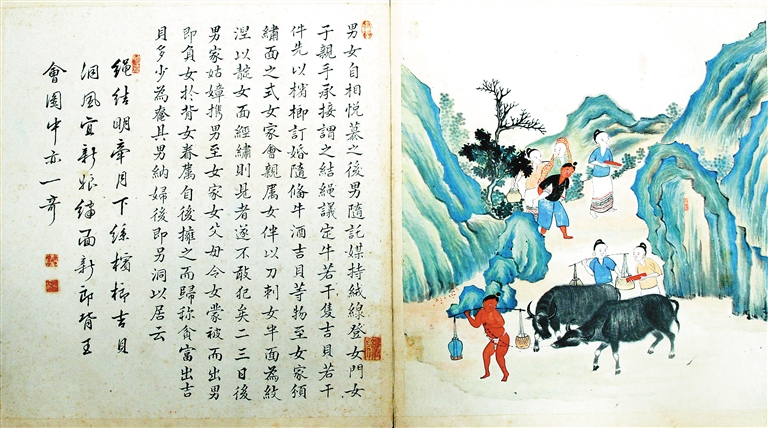 男女自相悦慕之後男隨託媒持絨線登女門女
子親手承接謂之結繩議定牛若干隻吉貝若干
件先以檳榔訂婚隨俻牛酒吉貝等物至女家頒
繡面之式女家會親属女伴以刀刺女半面為紋
涅以靛女面經繡則見者遂不敢犯矣二三日後
男家姑嫜携男至女家女父母令女蒙被而出男
即負女於背女眷属自後擁之而歸称貧富出吉
貝多少為奩具男納婦後即另洞以居云
繩結明牽月下絲檳榔吉貝
洞風宜新娘繡面新郎背王
會圖中亦一奇